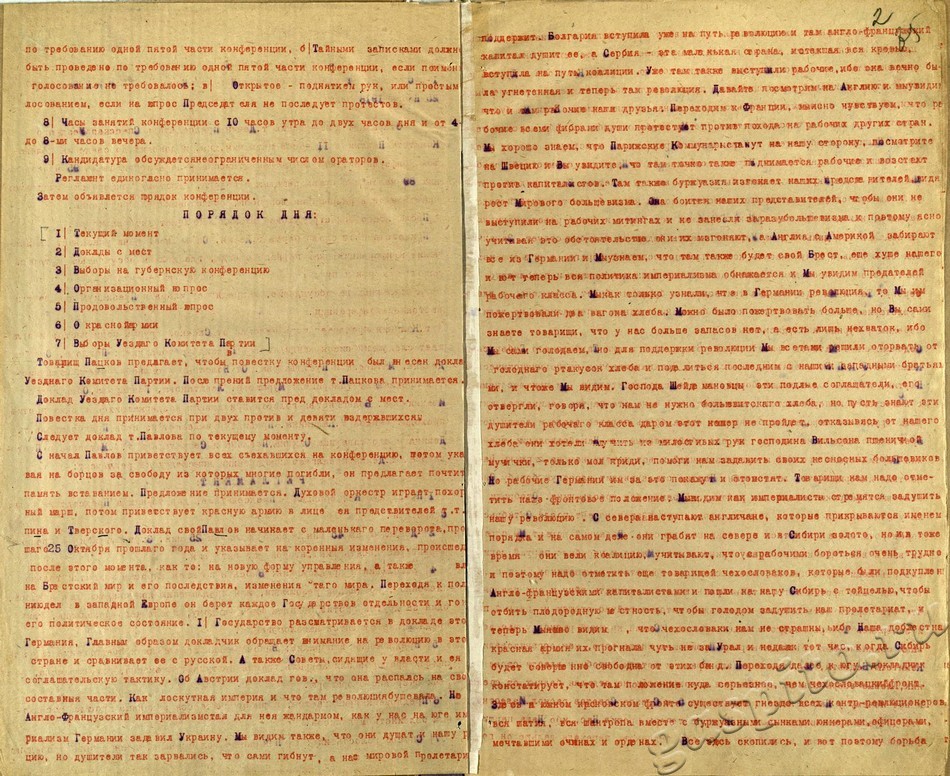 по требованию одной пятой части конференции, б| Тайными записками должно
быть проведено по требованию одной пятой части конференции, если поимен
голосование не требовалос; в| Открытое - поднятием рук, или простым
лосованием, если на впрос Председателя не последует протестов.
8| Часы занятий конференции с 10 часов утра до двух часов дня и от 4-
до 8-ми часов вечера.
9| Кандидатура обсуждетсянеограниченным числом ораторов.
Регламнт единогласно принимается.
Затем объявлется порядок конференции.
ПОРЯДОК ДНЯ:
1| Текущий момент
2| Доклды с мест
3| Выборы на губернскую конференцию
4| Организационный впрос
5| Продовольственный впрос
6| О краснойармии
7| Выборы Уездаго Комитета Партии
Товарищ Пацков предлагает, чтобы повестку конференции был внесен докла
Уезднаго Комитета Партии. После прений предложение т.Пацкова принимается.
Доклад Уездаго Комитета Партии ставится пред докладом с мест.
Повестка дня принимается при двух против и девяти воздержавшихся
Следует доклад т.Павлова по текущему моменту.
С начал Павлов приветствует всех съехавшихся на конференцию, потом ука
вая на борцов за свободу из которых многие погибли, он предлагает почтит
память вставанием. Предложение принимается. Духовой оркестр играет похор
ный марш, потом приветствует красную армию в лице ея представителей т.т.
пина и Тверского. Доклад свойПавлов начинает с маленькаго переворота, про
шаго 25 Октября прошлаго года и указывает на коренныя изменения, происшед
после этого момента, как то: на новую форму управления, а также вл
на Брестский мир и его последствия, изменения таго мира. Переходя к пол
ниюдел в западной Европе он берет каждое Государство в отдельности и гов
его политическое состояние. 1| Государство разсматривается в докладе это
Германия. Главным образом докладчик обращает внимание на революцию в это
стране и сравнивает ее с русской. А также Советы, сидящие у власти и ея
соглашательскую тактику. Об Австрии доклад гов., что она распалась на сво
составныя части. Как лоскутная империя и что там революциябушевала. Но
Англо-Французский империализмстал для нея жандармом, как у нас на юге им
риализм Германии задавил Украину. Мы видим также, что они душат и нашу р
цию, но душители так зарвались, что сами гибнут, а наш мировой пролетари
2
поддержит. Болгария вступила уже на путь революции и там англо-французский
капитал душит ее, а Сербия - эта маленькая страна, истекшая вся кровью,
вступила на путь коалиции. Уже там также выступили рабочие, ибо она вечно бы-
ла угнетонная и теперь там революция. Давайте посмотрим на Англию и мыувидим
что и там рабочие наши друзья. Переходим к Франции, мыясно чувствуем, что ра
бочие всеми фибрами души протестуют против похода на рабочих других стран.
Мы хорошо знаем, что Парижские Коммунарыстанут на нашу сторону, посмотрите
на Швецию и Вы увидите, что там точно также поднимается рабочие и возстают
против капиталистов. Там также буржуазия изгоняет наших представителей, видя
рост Мирового большевизма. Она боится наших представителей, чтобы они не
выступили на рабочих митингах и не занесли заразубольшевизма и поэтому ясно
учитывая это обстоятельство они их изгоняют, а Англия с Америкой забирают
все из Германии и Мыузнаем, что там также будет свой Брест, еще хуже нашего
и вот теперь вся политика империализма обнажается и Мы увидим предателей
рабочего класса. Мыкак только узнали, что в Германии революция, то Мы им
пожертвовали два вагона хлеба. Можно было пожертвовать больше, но Вы сами
знаете товарищи, что у нас больше запасов нет, а есть лишь нехваток, ибо
Мы сами голодаем, но для поддержки революции Мы всетаки решили оторвать от
голоднаго рта кусок хлеба и поделиться последним с нашими голодными братья
ми, и чтоже Мы видим. Господа Шейдемановцы эти подлые соглашатели, его
отвергли, говоря, что нам не нужно большевитскаго хлеба, но пусть знают эти
душители рабочего класса даром этот номер не пройдет, отказывясь от нашего
хлеба они хотели получить из милостивых рук господина Вильсона пшеничной
мучички, только мол приди, помоги нам задавить своих несносных большевиков.
Но рабочие Германии им за это покажут и отомстят. Товарищи нам надо отме-
тить наше фронтовое положение. Мывидим как империалисты стремятся задушить
нашу революцию. С севера наступают англичане, которые прикрываются именем
порядка и на самом деле они грабят на севере и в Сибири золото, но и в тоже
время они вели коалицию, учитывают, что с рабочими бороться очень трудно
и поэтому надо отметить еще товарищей чехословаков, которые были подкуплены
Англо-французскими капиталистами и пошли на нашу Сибирь с тойцелью, чтобы
отбить плодородную местность, чтобы голодом задушить наш пролетариат, и
теперь Мыясно видим , что чехословаки нам не страшны, ибо Наша доблестная
красная армия их прогнала чуть не за Урал и недалек тот час, когда Сибирь
будет совершенно свободна от этих банд. Переходя далее к югу докладчик
констатирует, что там положение куда серьезнее, чем чехословацкийфронт.
Здесь на южном красновском фронте существует гнездо всех контр-революционеров,
вся шатия, вся шантропа вместе с буржуазными сынками юнкерами, офицерами,
мечтавшими о чинах и орденах. Все здсь скопились, и вот поэтому борьба